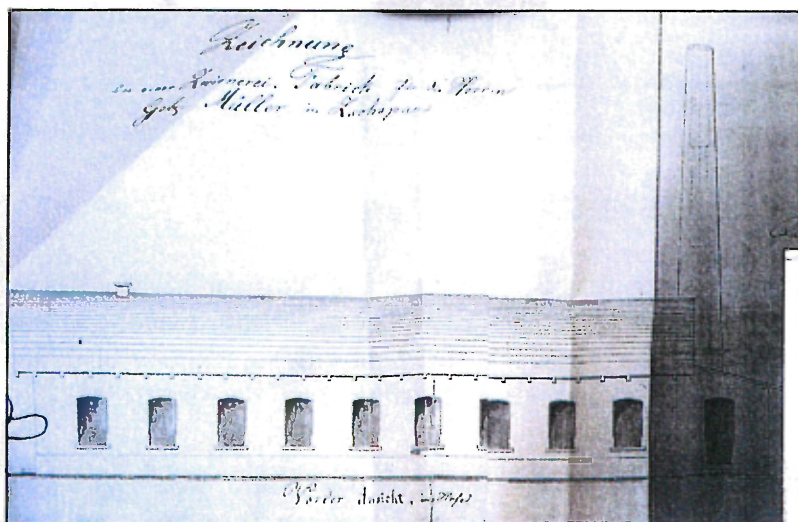 Zeichnung
zu einer Zwirnerei, Fabrick für die Herrn
Gebr Müller in
Vorder Ansicht,